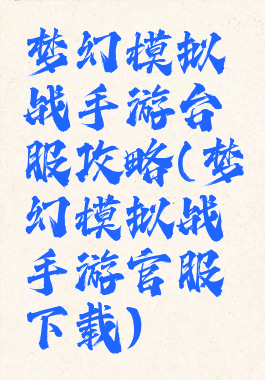 梦幻模拟
战手游台
服攻略(梦
幻模拟战
手游官服
下载)